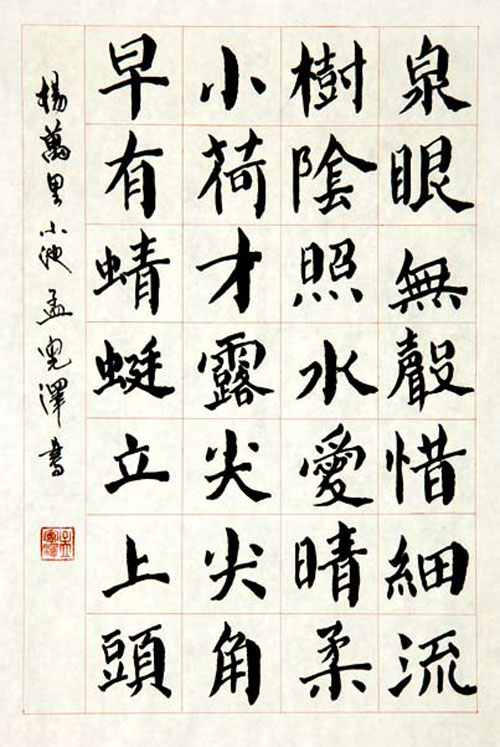 泉眼無聲惜細流
樹陰照水愛晴柔
小荷才露尖尖角
早有蜻蜓立上頭
楊萬里小池 孟澤書